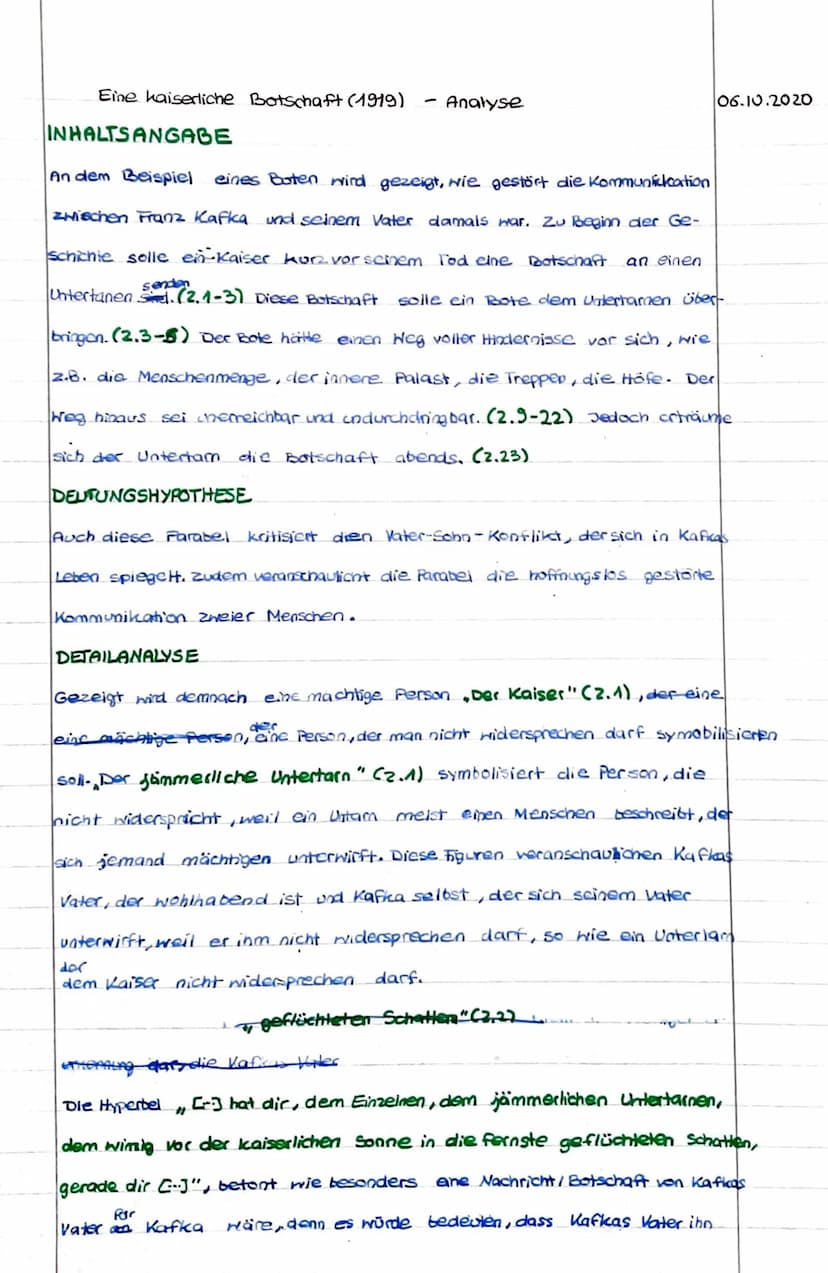 Eine kaiserliche Botschaft (1919) - Analyse 06.10.2020
INHALTSANGABE
An dem Beispiel eines Boten wird gezeigt, wie gestört die Kommunikation
zwischen Franz Kafka und seinem Vater damals war. Zu Beginn der Ge-
schichte solle ein Kaiser kurz vor seinem Tod eine Botschaft an einen
Untertanen senden. (Z.1-3) Diese Botschaft solle ein Bote dem Untertanen über-
bringen. (Z.3-8) Der Bote hätte einen Weg voller Hindernisse vor sich, wie
z.B. die Menschenmenge, der innere Palast, die Treppen, die Höfe. Der
Weg hinaus sei unerreichbar und undurchdringbar. (Z.9-22) Jedoch erträume
sich der Untertarn die Botschaft abends. (Z.23)
DEUTUNGSHYPOTHESE
Auch diese Parabel kritisiert den Vater-Sohn-Konflikt, der sich in Kafkas
Leben spiegelt. Zudem veranschaulicht die Parabel die hoffnungslos gestörte
Kommunikation zweier Menschen.
DETAILANALYSE
Gezeigt wird demnach eine mächtige Person „Der Kaiser" (Z.1), der eine
eine mächtige Person, der eine Person, der man nicht widersprechen darf symobilisieren
soll. „Der jämmerliche Untertarn" (Z.1) symbolisiert die Person, die
nicht widerspricht, weil ein Untarn meist einen Menschen beschreibt, der
sich jemand mächtigen unterwirft. Diese Figuren veranschaulichen Kafkas
Vater, der wohlhabend ist und Kafka selbst, der sich seinem Vater
unterwirft, weil er ihm nicht widersprechen darf, so wie ein Untertarn
der
dem Kaiser nicht widersprechen darf.
„geflüchteten Schatten" (Z.2)
dar, die Kafkas Vater
Die Hyperbel „[...] hat dir, dem Einzelnen, dem jämmerlichen Untertarnen,
dem winzig vor der kaiserlichen Sonne in die fernste geflüchteten Schatten,
gerade dir [...]", betont wie besonders eine Nachricht / Botschaft von Kafkas
Vater für Kafka wäre, denn es würde bedeuten, dass Kafkas Vater ihn